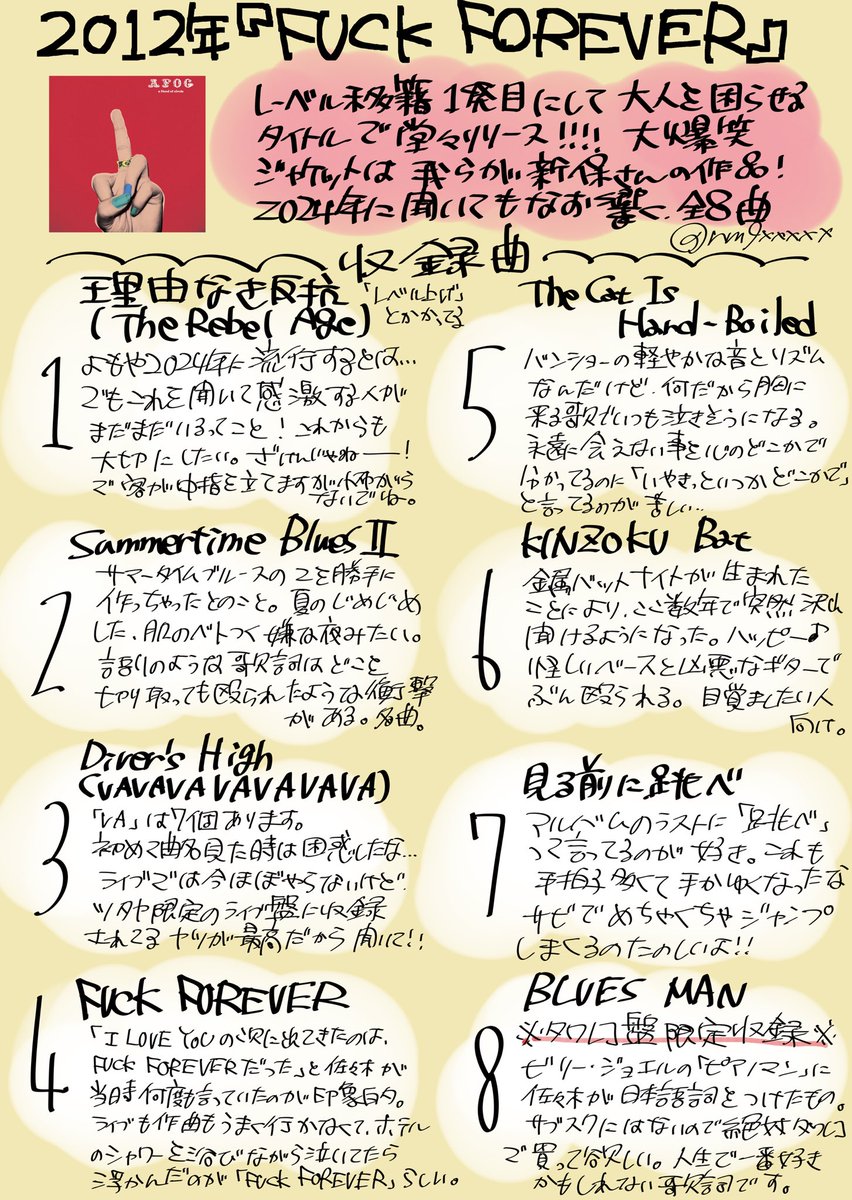 2012年『FUCK FOREVER』
AFOG
a flood of circle
レーベル移籍1発目にして大人を困らせる
タイトルで堂々リリース!!!! 大爆笑
ジャケットは我らが新保さんの作品!
2024年に聞いてもなお響く、全8曲
@nm9xxxxx
収録曲
1
理由なき反抗
(The Rebel Age)
「レベル上げ」
とかかってる
よもや2024年に流行するとは…
でもこれを聞いて感激する人が
まだまだいるってこと!これからも
大切にしたい。ざけんじゃねー!
で客が中指を立てますが怖がら
ないでね。
2
Summertime Blues II
サマータイムブルースの2を勝手に
作っちゃったとのこと。夏のじめじめ
した、肌のベトつく嫌な夜みたい。
語りのような歌詞はどこを
切り取っても殴られたような衝撃
がある。名曲。
3
Diver's High
(VAVAVAVAVAVAVAVA)
「VA」は7個あります。
初めて曲名見た時は困惑したな…
ライブでは今ほぼやらないけど、
ツタヤ限定のライブ盤に収録
されてるヤツが最高だから聞いて!!
4
FUCK FOREVER
「I LOVE YOUの次に出てきたのは、
FUCK FOREVERだった」と佐々木が
当時何度も言っていたのが印象的。
ライブも作曲もうまく行かなくて、ホテル
のシャワーを浴びながら泣いてたら
浮かんだのが「FUCK FOREVER」らしい。
5
The Cat Is
Hard-Boiled
バンジョーの軽やかな音とリズム
なんだけど、何だから胸に
来る歌でいつも泣きそうになる。
永遠に会えない事を心のどこかで
分かってるのに「いやきっといつかどこかで」
と言ってるのが苦しい…
6
KINZOKU Bat
金属バットナイトが生まれた
ことにより、ここ数年で突然沢山
聞けるようになった。ハッピー♪
怪しいベースと凶悪なギターで
ぶん殴られる。目覚ましたい人
向け。
7
見る前に跳べ
アルバムのラストに「跳べ」
って言ってるのが好き。これも
手拍子多くて手かゆくなったな
サビでめちゃくちゃジャンプ
しまくるのたのしいよ!!
8
BLUES MAN
※タワレコ盤限定収録※
ビリー・ジョエルの「ピアノマン」に
佐々木が日本語詞をつけたもの。
サブスクにはないので絶対タワレコ
で買って欲しい。人生で一番好き
かもしれない歌詞です。